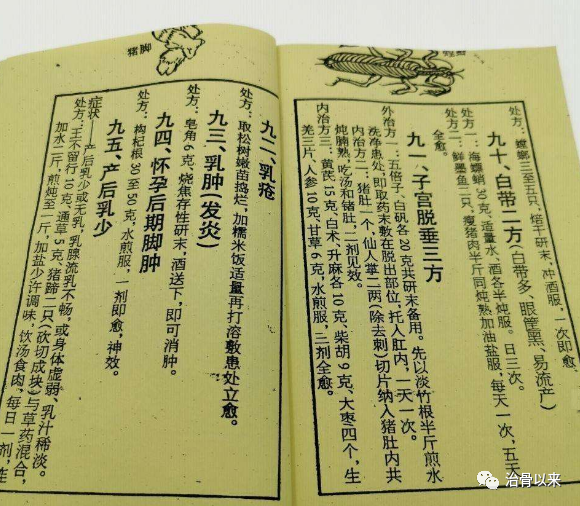 处方：螳螂三至五只，焙干研末，冲酒服，一次即愈。
九十、白带二方（白带多、眼眶黑、易流产）
处方一：海螵蛸30克，适量水、酒各半炖服。日三次。
处方二：鲜墨鱼二只，瘦猪肉半斤同炖熟加油盐服，每天一次，五天
全愈。
九一、子宫脱垂三方
外治方一：五倍子、白矾各20克共研末备用。先以淡竹根半斤煎水
洗净患处，即取药末敷在脱出部位，托入肛内，一天一次。
内治方二：猪肚一个，仙人掌二两（除去刺）切片纳入猪肚内共
炖腩熟，吃汤和猪肚，二剂见效。
内治方三：黄芪15克，白术、升麻各10克、柴胡9克，大枣四个，生
羌三片，人参10克、甘草6克，水煎服，三剂全愈。
猪脚
九二、乳疮
处方：取松树嫩苗捣烂，加糯米饭适量再打溶敷患处立愈。
九三、乳肿（发炎）
处方：皂角6克，烧焦存性研末，酒送下，即可消肿。
九四、怀孕后期脚肿
处方：枸杞根30至50克，水煎服，一剂即愈，神效。
九五、产后乳少
症状——产后乳少或无乳，乳腺流乳不畅，或身体虚弱、乳汁稀淡。
处方：王不留行10克、通草5克、猪蹄二只（砍切成块）与草药混合，
加水二斤，煎炖至一斤，加盐少许调味，饮汤食肉，每日一剂，连
治骨以来